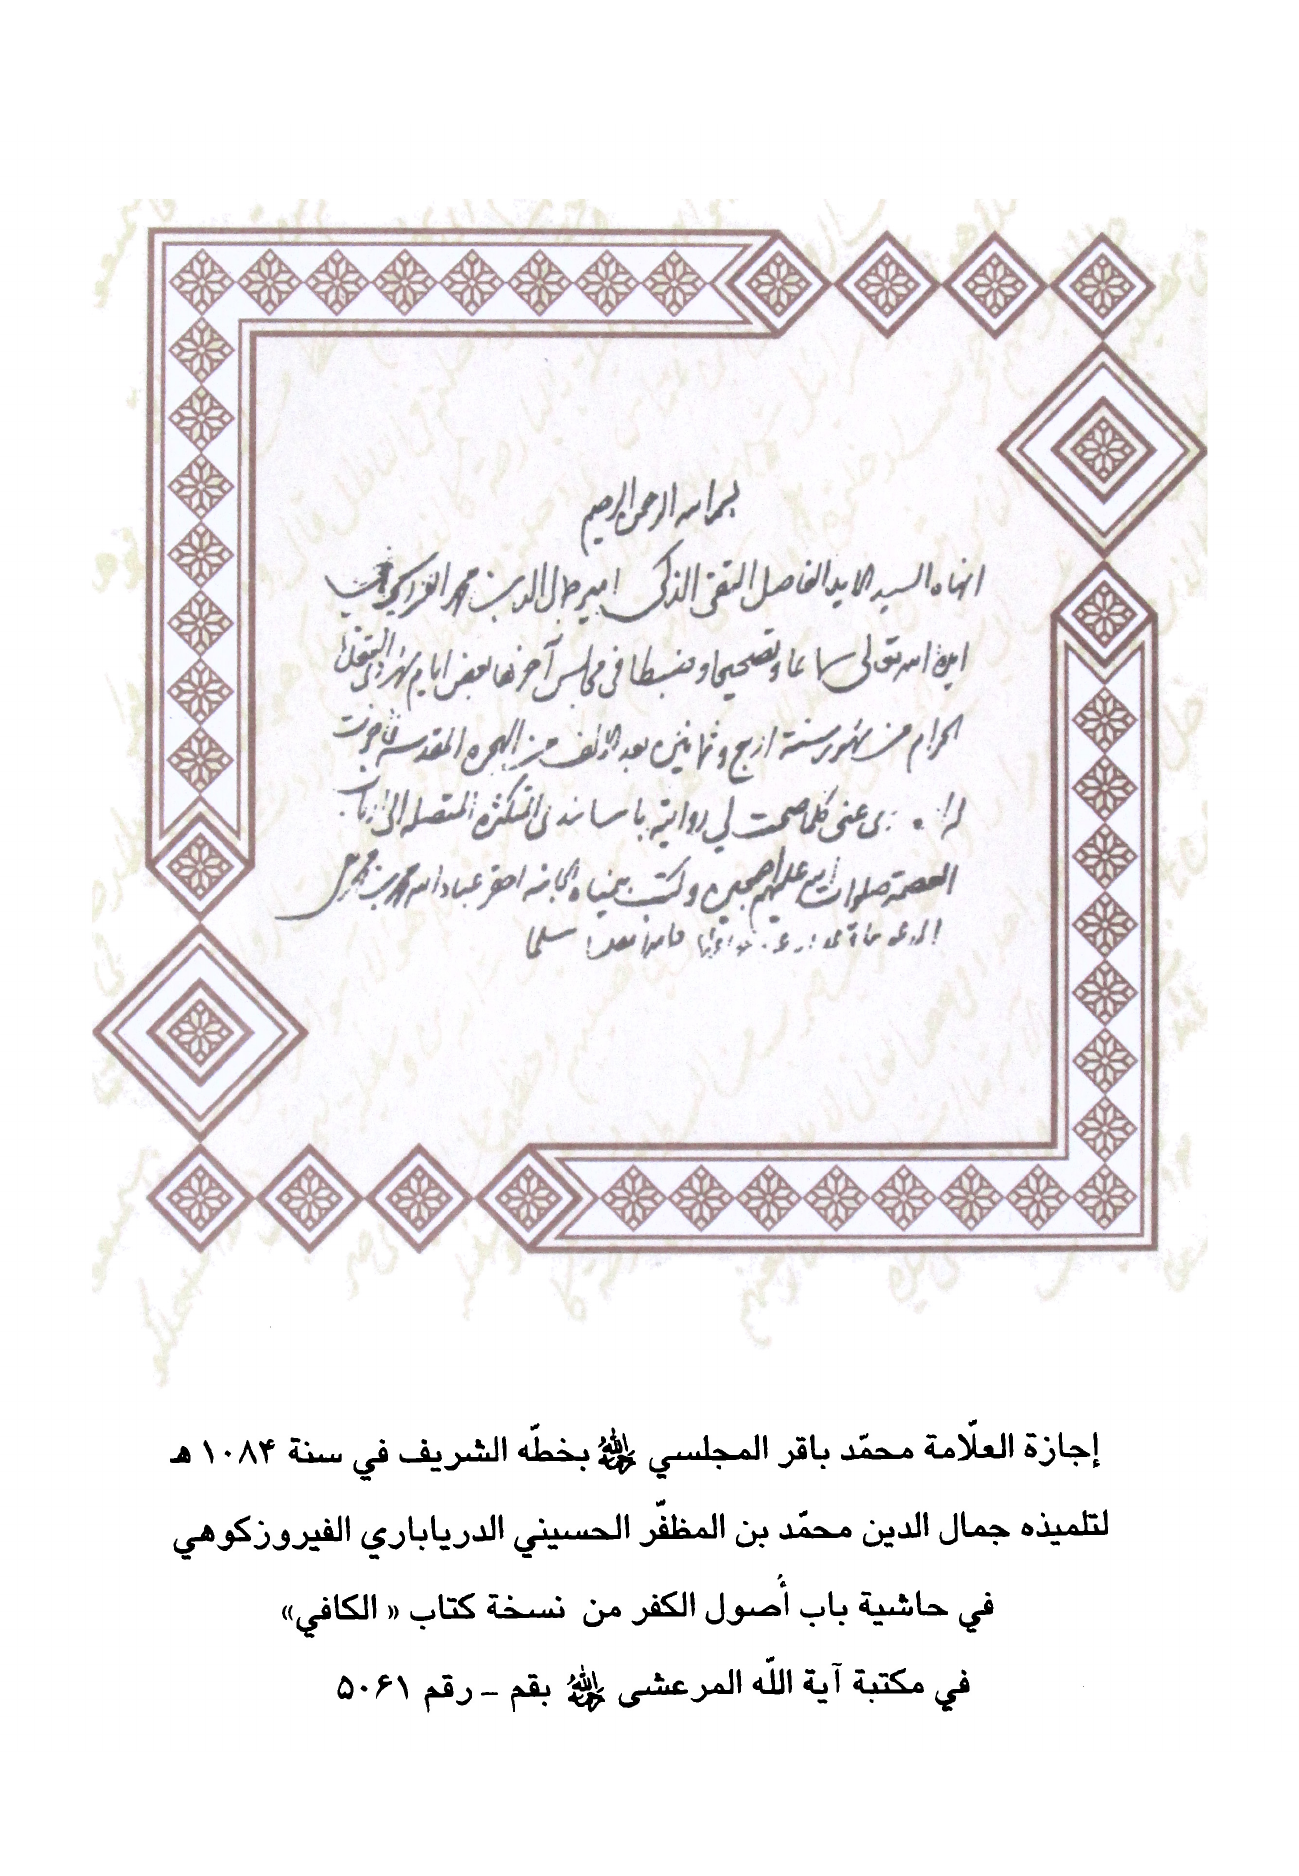 بسم الله الرحمن الرحيم
انهاه السيد الايد الفاضل التقي الذكي امير جمال الدين محمد
ايده الله تعالى سماعا وتصحيحا وضبطا في مجالس آخرها بعض ايام شهر ذي القعدة
الحرام من شهور سنة اربع وثمانين بعد الالف من الهجرة المقدسة فاجزت
له عني كلما صحت لي روايته باسانيدي المتكثرة المتصلة الى ارباب
العصمة صلوات الله عليهم اجمعين وكتب بيمناه الجانية احقر عباد الله محمد بن محمد
إجازة العلّامة محمّد باقر المجلسي رحمه الله بخطّه الشريف في سنة ۱۰۸۴ هـ
لتلميذه جمال الدين محمّد بن المظفّر الحسيني الدرياباري الفيروزكوهي
في حاشية باب أُصول الكفر من نسخة كتاب « الكافي»
في مكتبة آية اللّه المرعشى رحمه الله بقم – رقم ۵۰۶۱